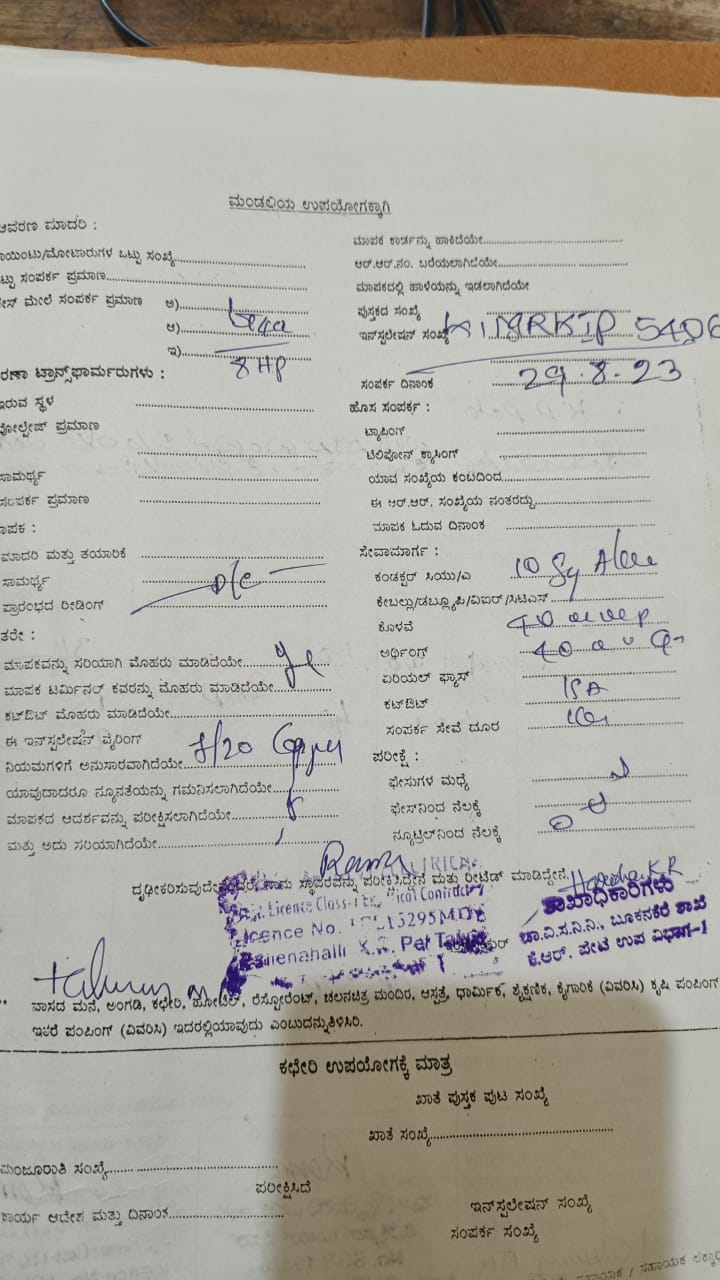 ಮಂಡಲಿಯ ಉಪಯೋಗಕ್ಕಾಗಿ
ಆವರಣ ಮಾದರಿ :
ಪಾಯಿಂಟು/ಮೋಟಾರುಗಳ ಒಟ್ಟು ಸಂಖ್ಯೆ
ಒಟ್ಟು ಸಂಪರ್ಕ ಪ್ರಮಾಣ
ಮೇಲೆ ಸಂಪರ್ಕ ಪ್ರಮಾಣ ಅ)
ಆ)
ಇ) 8 HP
ಟ್ರಾನ್ಸ್‌ಫಾರ್ಮರುಗಳು :
ಇರುವ ಸ್ಥಳ
ವೋಲ್ಟೇಜ್ ಪ್ರಮಾಣ
ಸಾಮರ್ಥ್ಯ
ಸಂಪರ್ಕ ಪ್ರಮಾಣ
ಮಾಪಕ :
ಮಾದರಿ ಮತ್ತು ತಯಾರಿಕೆ
ಸಾಮರ್ಥ್ಯ
ಪ್ರಾರಂಭದ ರೀಡಿಂಗ್
ಇತರೇ :
ಮಾಪಕವನ್ನು ಸರಿಯಾಗಿ ಮೊಹರು ಮಾಡಿದೆಯೇ
ಮಾಪಕ ಟರ್ಮಿನಲ್ ಕವರನ್ನು ಮೊಹರು ಮಾಡಿದೆಯೇ
ಕಟ್‌ಔಟ್ ಮೊಹರು ಮಾಡಿದೆಯೇ
ಈ ಇನ್‌ಸ್ಟಲೇಷನ್ ವೈರಿಂಗ್
ನಿಯಮಗಳಿಗೆ ಅನುಸಾರವಾಗಿದೆಯೇ
ಯಾವುದಾದರೂ ನ್ಯೂನತೆಯನ್ನು ಗಮನಿಸಲಾಗಿದೆಯೇ
ಮಾಪಕದ ಆದರ್ಶವನ್ನು ಪರೀಕ್ಷಿಸಲಾಗಿದೆಯೇ
ಮತ್ತು ಅದು ಸರಿಯಾಗಿದೆಯೇ
ಮಾಪಕ ಕಾರ್ಡನ್ನು ಹಾಕಿದೆಯೇ
ಆರ್.ಆರ್.ನಂ. ಬರೆಯಲಾಗಿದೆಯೇ
ಮಾಪಕದಲ್ಲಿ ಹಾಳೆಯನ್ನು ಇಡಲಾಗಿದೆಯೇ
ಪುಸ್ತಕದ ಸಂಖ್ಯೆ
ಇನ್‌ಸ್ಟಲೇಷನ್ ಸಂಖ್ಯೆ KIMRKIP 5406
ಸಂಪರ್ಕ ದಿನಾಂಕ 29.8.23
ಹೊಸ ಸಂಪರ್ಕ :
ಟ್ಯಾಪಿಂಗ್
ಟೆಲಿಫೋನ್ ಕ್ಯಾಸಿಂಗ್
ಯಾವ ಸಂಖ್ಯೆಯ ಕಂಬದಿಂದ
ಈ ಆರ್.ಆರ್. ಸಂಖ್ಯೆಯ ನಂತರದ್ದು
ಮಾಪಕ ಓದುವ ದಿನಾಂಕ
ಸೇವಾಮಾರ್ಗ :
ಕಂಡಕ್ಟರ್ ಸಿಯು/ಎ 10 Sq
ಕೇಬಲ್ಲು/ಡಬ್ಲ್ಯೂಪಿ/ವಿಐರ್/ಸಿಟಿಎಸ್
ಕೊಳವೆ 40
ಅರ್ಥಿಂಗ್ 40
ಏರಿಯಲ್ ಫ್ಯೂಸ್
ಕಟ್‌ಔಟ್ 15A
ಸಂಪರ್ಕ ಸೇವೆ ದೂರ
ಪರೀಕ್ಷೆ :
ಫೇಸುಗಳ ಮಧ್ಯೆ
ಫೇಸ್‌ನಿಂದ ನೆಲಕ್ಕೆ
ನ್ಯೂಟ್ರಲ್‌ನಿಂದ ನೆಲಕ್ಕೆ
ನಾನು ಸ್ಥಾವರವನ್ನು ಪರೀಕ್ಷಿಸಿದ್ದೇನೆ ಮತ್ತು ರೀಟೆಡ್ ಮಾಡಿದ್ದೇನೆ
Licence Class-1 Electrical Contractor
Licence No.
K.R. Pet Taluk
ಶಾಖಾಧಿಕಾರಿಗಳು
ಚಾ.ವಿ.ಸ.ನಿ.ನಿ., ಬೂಕನಕೆರೆ ಶಾಖೆ
ಕೆ.ಆರ್. ಪೇಟೆ ಉಪ ವಿಭಾಗ-1
** ವಾಸದ ಮನೆ, ಅಂಗಡಿ, ಕಛೇರಿ, ಹೋಟೆಲ್, ರೆಸ್ಟೋರೆಂಟ್, ಚಲನಚಿತ್ರ ಮಂದಿರ, ಆಸ್ಪತ್ರೆ, ಧಾರ್ಮಿಕ, ಶೈಕ್ಷಣಿಕ, ಕೈಗಾರಿಕೆ (ವಿವರಿಸಿ) ಕೃಷಿ ಪಂಪಿಂಗ್
ಇತರೆ ಪಂಪಿಂಗ್ (ವಿವರಿಸಿ) ಇದರಲ್ಲಿಯಾವುದು ಎಂಬುದನ್ನುತಿಳಿಸಿರಿ.
ಕಛೇರಿ ಉಪಯೋಗಕ್ಕೆ ಮಾತ್ರ
ಖಾತೆ ಪುಸ್ತಕ ಪುಟ ಸಂಖ್ಯೆ
ಖಾತೆ ಸಂಖ್ಯೆ
ಮಂಜೂರಾತಿ ಸಂಖ್ಯೆ
ಪರೀಕ್ಷಿಸಿದೆ
ಕಾರ್ಯ ಆದೇಶ ಮತ್ತು ದಿನಾಂಕ
ಇನ್‌ಸ್ಟಲೇಷನ್ ಸಂಖ್ಯೆ
ಸಂಪರ್ಕ ಸಂಖ್ಯೆ